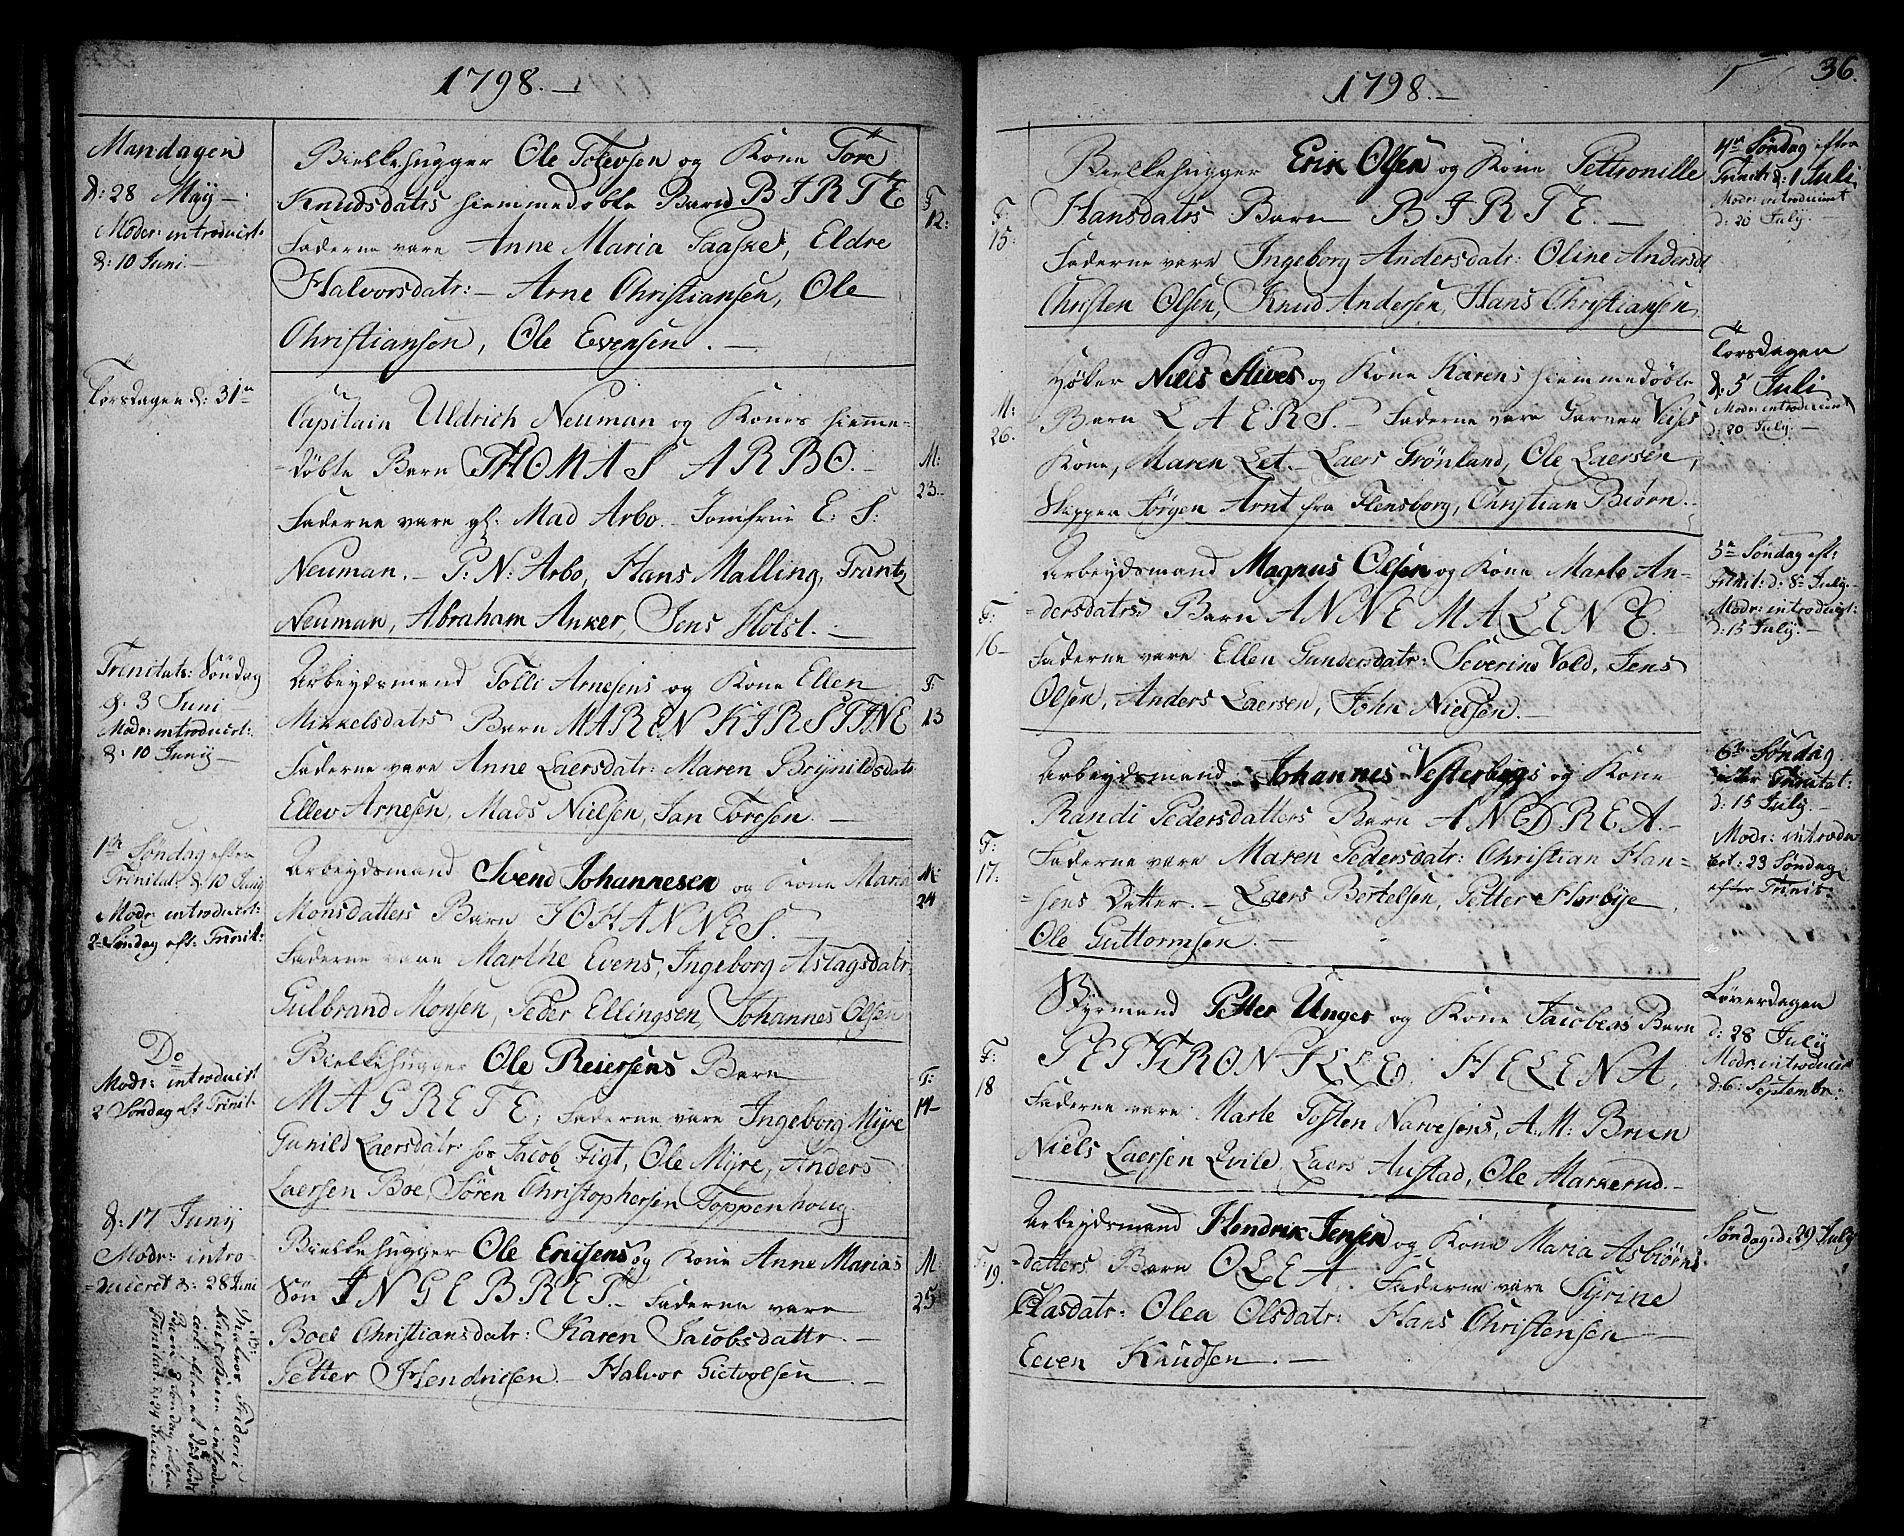 1798.
Mandagen
d: 28 Maÿ
Moder: introducirt
d: 10 Juni.
Biellehugger Ole Tolevsen og Kone Tore
Knudsdatrs hiemmedøbte Barn BIRTE
F 12:
Fadderne vare Anne Maria Paaske, Eldre
Halvorsdatr: Arne Christiansen, Ole
Christiansen, Ole Evensen.
Torsdagen d: 31te
Capitain Uldrich Neuman og Kones hiemme-
døbte Barn THOMAS ARBO.
M: 23.
Fadderne vare gl. Mad Arbo. Jomfrue E: S:
Neuman. P: N: Arbo, Hans Malling, Frantz
Neuman, Abraham Anker, Jens Holst.
Trinitats: Søndag
d. 3 Juni
Modr: introducirt:
d: 10 Junij
Arbeydsmand Tolli Arnesens og Kone Ellen
Mikkelsdatrs Barn MAREN KIRSTINE
F: 13
Fadderne vare Anne Laersdatr: Maren Brÿnildsdatr
Ellev Arnesen, Mads Nielsen, Jan Toresen.
1te Søndag efter
Trinitat: d: 10 Junij
Modr: introducirt:
2. Søndag eft: Trinit:
Arbeydsmand Svend Johannesen og Kone Maria
Monsdatters Barn JOHANNES.
M: 24
Fadderne vare Marthe Evens, Ingeborg Aslagsdatr,
Gulbrand Monsen, Peder Ellingsen, Johannes Olsen
Do
Modr: introducirt
2 Søndag eft Trinit.
Biellehugger Ole Reiersens Barn
MAGRETE; Fadderne vare Ingeborg Mÿre
F: 14
Gunild Laersdatr hos Jacob Figt, Ole Mÿre, Anders
Laersen Boe, Søren Christophersen Toppenhoug.
d: 17 Junij
Modr: intro-
ducieret d: 28 Juni
Biellehugger Ole Ericsens og Kone Anne Marias
Søn INGEBRET. Fadderne vare
M: 25
Boel Christiansdatr: Karen Jacobsdattr.
Petter Hendricsen. Halvor Gietvolsen
NB:
Halvor Frideric
Trinitat: d: 24 Juni.
36.
1798.
4de Søndag efter
Trinit: d: 1 Juli
Modr: introduceret
d: 20 July.
F: 15:
Biellehugger Erik Olsen og Kone Pettronille
Hansdatrs Barn BIRTE.
Fadderne vare Ingeborg Andersdatr: Oline Andersdr
Christen Olsen, Knud Andersen, Hans Christiansen
Torsdagen
d. 5 Juli
Modr: introduceret
d: 20 July.
M: 26.
Høker Niels Stives og Kone Karens hiemmedøbte
Barn LAERS. Fadderne vare Garver Veises
Kone, Maren Let. Laers Grönland, Ole Laersen,
Skipper Jörgen Arnt fra Flensborg, Christian Biørn.
5te Søndag eft:
Trinit: d: 8de July.
Modr: introducirt:
d: 15 July.
F: 16
Arbeydsmand Magnus Olsen og Kone Marte An-
dersdatrs: Barn ANNE MALENE.
Fadderne vare Ellen Gundersdatr: Severine Vold, Jens
Olsen, Anders Laersen, John Nielsen.
6te Søndag
efter Trinitat:
d: 15 July.
Modr: introdu-
cirt: 23 Søndag
efter Trinit:
F: 17.
Arbeydsmand Johannes Vesterbyes og Kone
Randi Pedersdatters Barn ANEDREA.
Fadderne vare Maren Pedersdatr: Christian Han-
sens Datter. Laers Bertelsen, Petter Horbÿe,
Ole Guttormsen.
Løverdagen
d: 28 July
Modr: introducirt
d: 6: Septembr:
F: 18
Styrmand Petter Unger og Kone Jacobeas Barn
PETTRONILLE HELENA.
Fadderne vare Marte Tosten Narvesens, A. M: Brun
Niels Laersen Qvile, Laers Austad, Ole Markerud.
Søndag d: 29 July
F: 19.
Arbeydsmand Hendrik Jensen og Kone Maria Asbiørns-
datters Barn OLEA. Fadderne vare Syrine
Olasdatr: Olea Olsdatr: Hans Christensen
Eeven Knudsen.